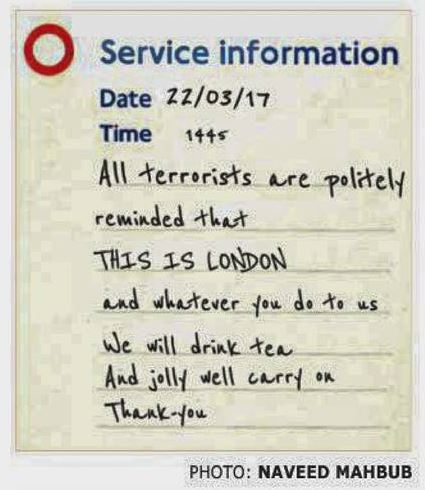 Service information
Date 22/03/17
Time 1445
All terrorists are politely
reminded that
THIS IS LONDON
and whatever you do to us
We will drink tea
And jolly well carry on
Thank-you
PHOTO: NAVEED MAHBUB